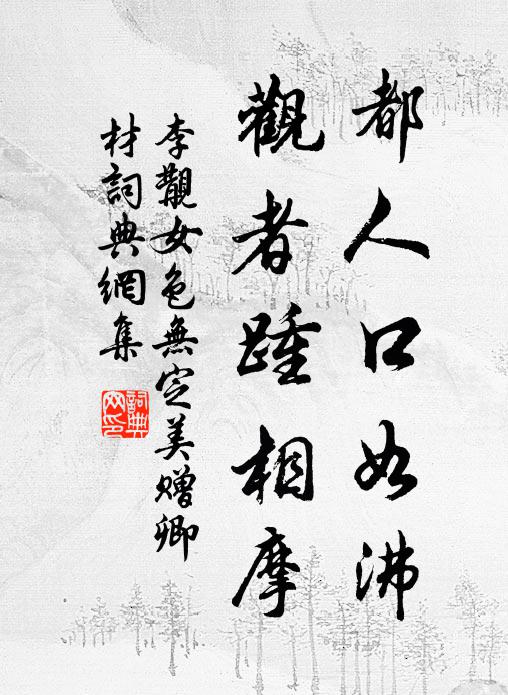 都人口如沸
觀者踵相摩
李覯女色無定美贈卿
材詞典網集
詞典網印